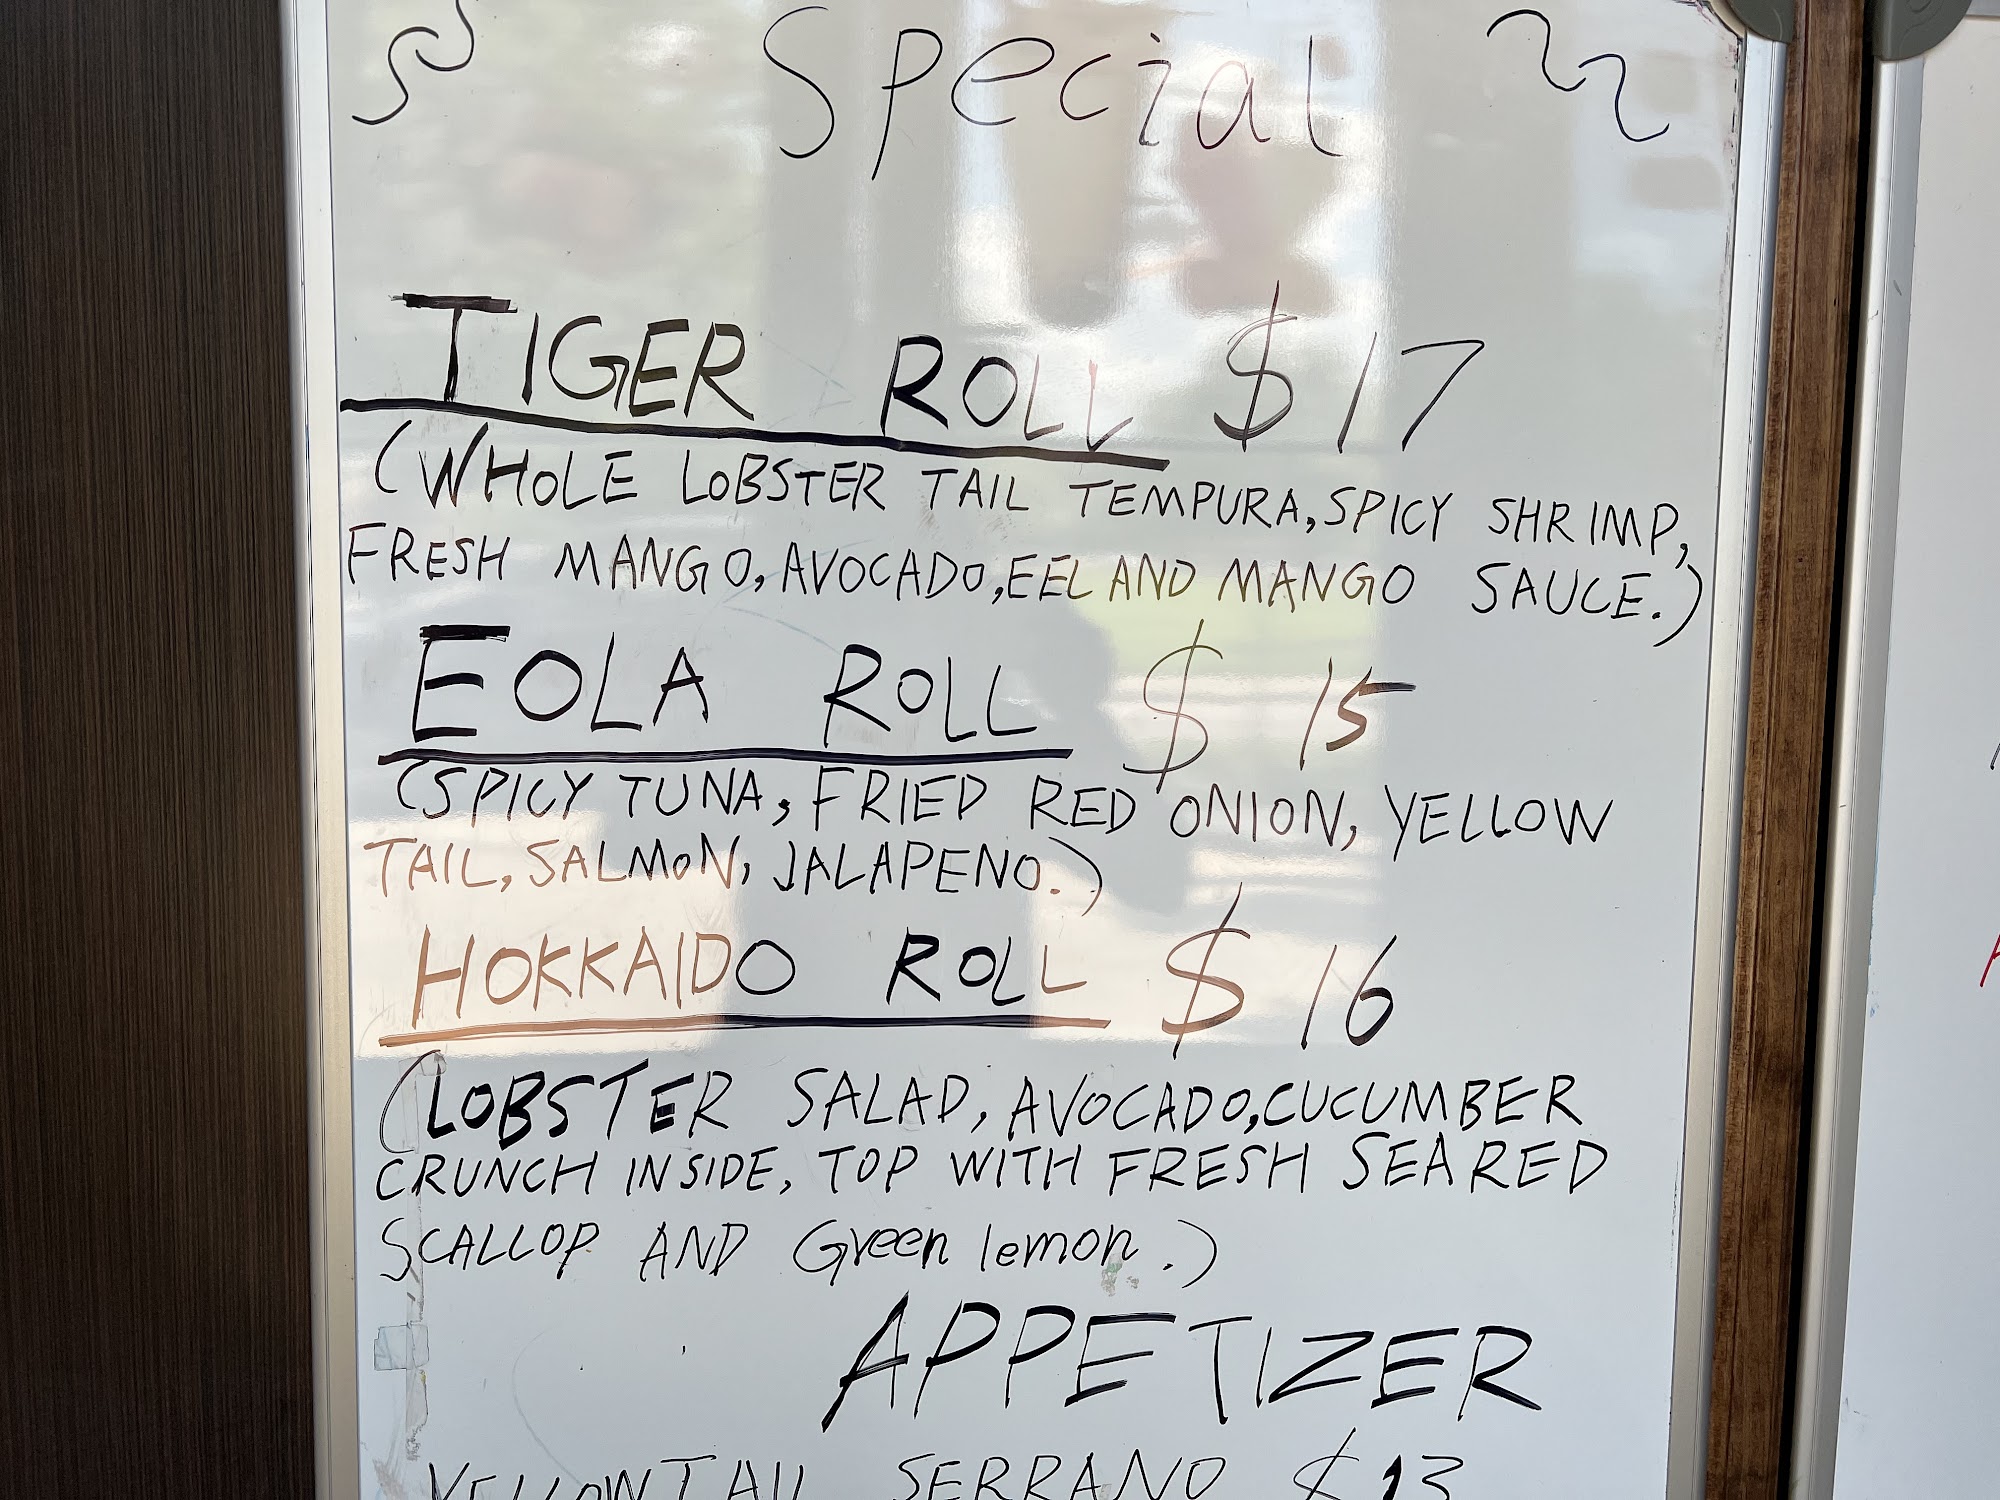 Special
TIGER ROLL $17
(WHOLE LOBSTER TAIL TEMPURA, SPICY SHRIMP,
FRESH MANGO, AVOCADO, EEL AND MANGO SAUCE.)
EOLA ROLL $15
(SPICY TUNA, FRIED RED ONION, YELLOW
TAIL, SALMON, JALAPENO.)
HOKKAIDO ROLL $16
(LOBSTER SALAD, AVOCADO, CUCUMBER
CRUNCH INSIDE, TOP WITH FRESH SEARED
SCALLOP AND Green lemon.)
APPETIZER
YELLOWTAIL SERRANO $13